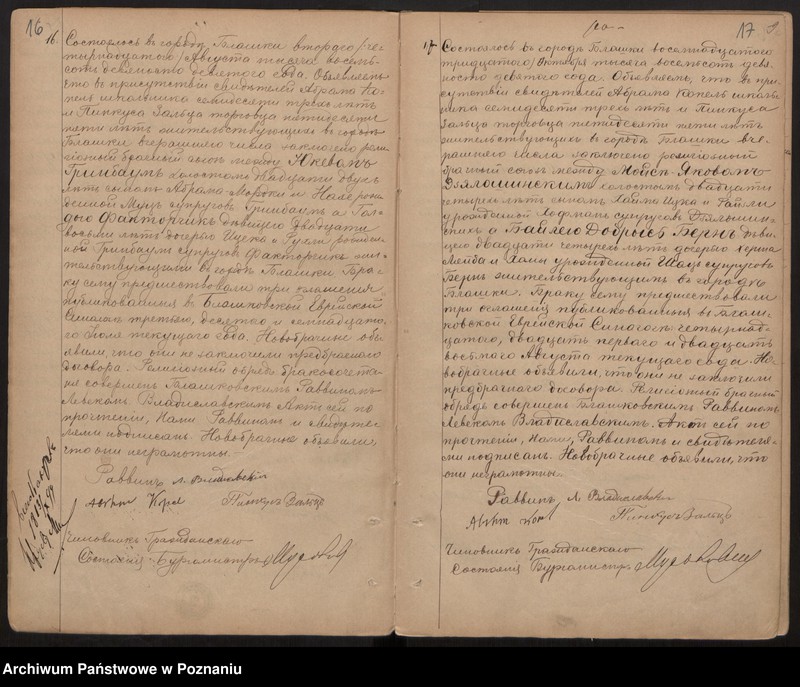 16
16.
Состоялось въ городѣ Блашки втораго /че-
тырнадцатаго/ Августа тысяча восемь-
сотъ девяносто девятого года. Объявляемъ
что въ присутствіи свидѣтелей Абрама Ко-
пель школьника семидесяти трехъ лѣтъ
и Пинкуса Зальца торговца пятидесяти
пяти лѣтъ жительствующихъ въ городѣ
Блашки вчерашняго числа заключено рели-
гіозный брачный союзъ между
Гринбаумъ холостымъ двадцати двухъ
лѣтъ сыномъ Абрама-Мордки и рож-
денной Муцъ супруговъ Гринбаумъ а Гол-
дою Факторчикъ дѣвицею двадцати
восьми лѣтъ дочерью Ицека и рожден-
ной Гринбаумъ супруговъ Факторчикъ жи-
тельствующими въ городѣ Блашки. Бра-
ку сему предшествовали три оглашенія
публикованныя въ Блашковской Еврейской
Синагогѣ третьяго, десятаго и семнадцата-
го Іюля текущаго года. Новобрачные объ-
явили, что они не заключили предбрачнаго
договора. Религіозный обрядъ бракосочета-
нія совершенъ Блашковскимъ Раввиномъ
Левекомъ Владиславскимъ. Актъ сей по
прочтеніи, Нами, Раввиномъ и свидѣте-
лями подписанъ. Новобрачные объявили
что они неграмотны.
Раввинъ Л. Владиславскій
Abram Kopel Пинкусъ Зальцъ
Чиновникъ Гражданскаго
Состоянія Бургомистръ
17
17
Состоялось въ городѣ Блашки восемнадцатаго
/тридцатаго/ Октября тысяча восемьсотъ девя-
носто девятого года. Объявляемъ, что въ при-
сутствіи свидѣтелей Абрама Копель школь-
ника семидесяти трехъ лѣтъ и Пинкуса
Зальца торговца пятидесяти пяти лѣтъ
жительствующихъ въ городѣ Блашки вче-
рашняго числа заключено религіозный
брачный союзъ между Мойсѣ-Яковомъ
Дзялошинскимъ холостымъ двадцати
четырехъ лѣтъ сыномъ Хаима Ицка и Райзли
урожденной Хофманъ супруговъ Дзялошин-
скихъ а Байлею Добрысъ Бернъ дѣви-
цею двадцати четырехъ лѣтъ дочерью Херша
Лейба и Ханы урожденной Шацъ супруговъ
Бернъ жительствующимъ въ городѣ
Блашки. Браку сему предшествовали
три оглашенія публикованныя въ Блаш-
ковской Еврейской Синагогѣ четырнад-
цатаго, двадцать перваго и двадцать
восьмаго Августа текущаго года. Но-
вобрачные объявили, что они не заключили
предбрачнаго договора. Религіозный брачный
обрядъ совершенъ Блашковскимъ Раввиномъ
Левекомъ Владиславскимъ. Актъ сей по
прочтеніи, Нами, Раввиномъ и свидѣтеля-
ми подписанъ. Новобрачные объявили, что
они неграмотны.
Раввинъ Л. Владиславскій
Abram Kopel Пинкусъ Зальцъ
Чиновникъ Гражданскаго
Состоянія Бургомистръ
Archiwum Państwowe w Poznaniu